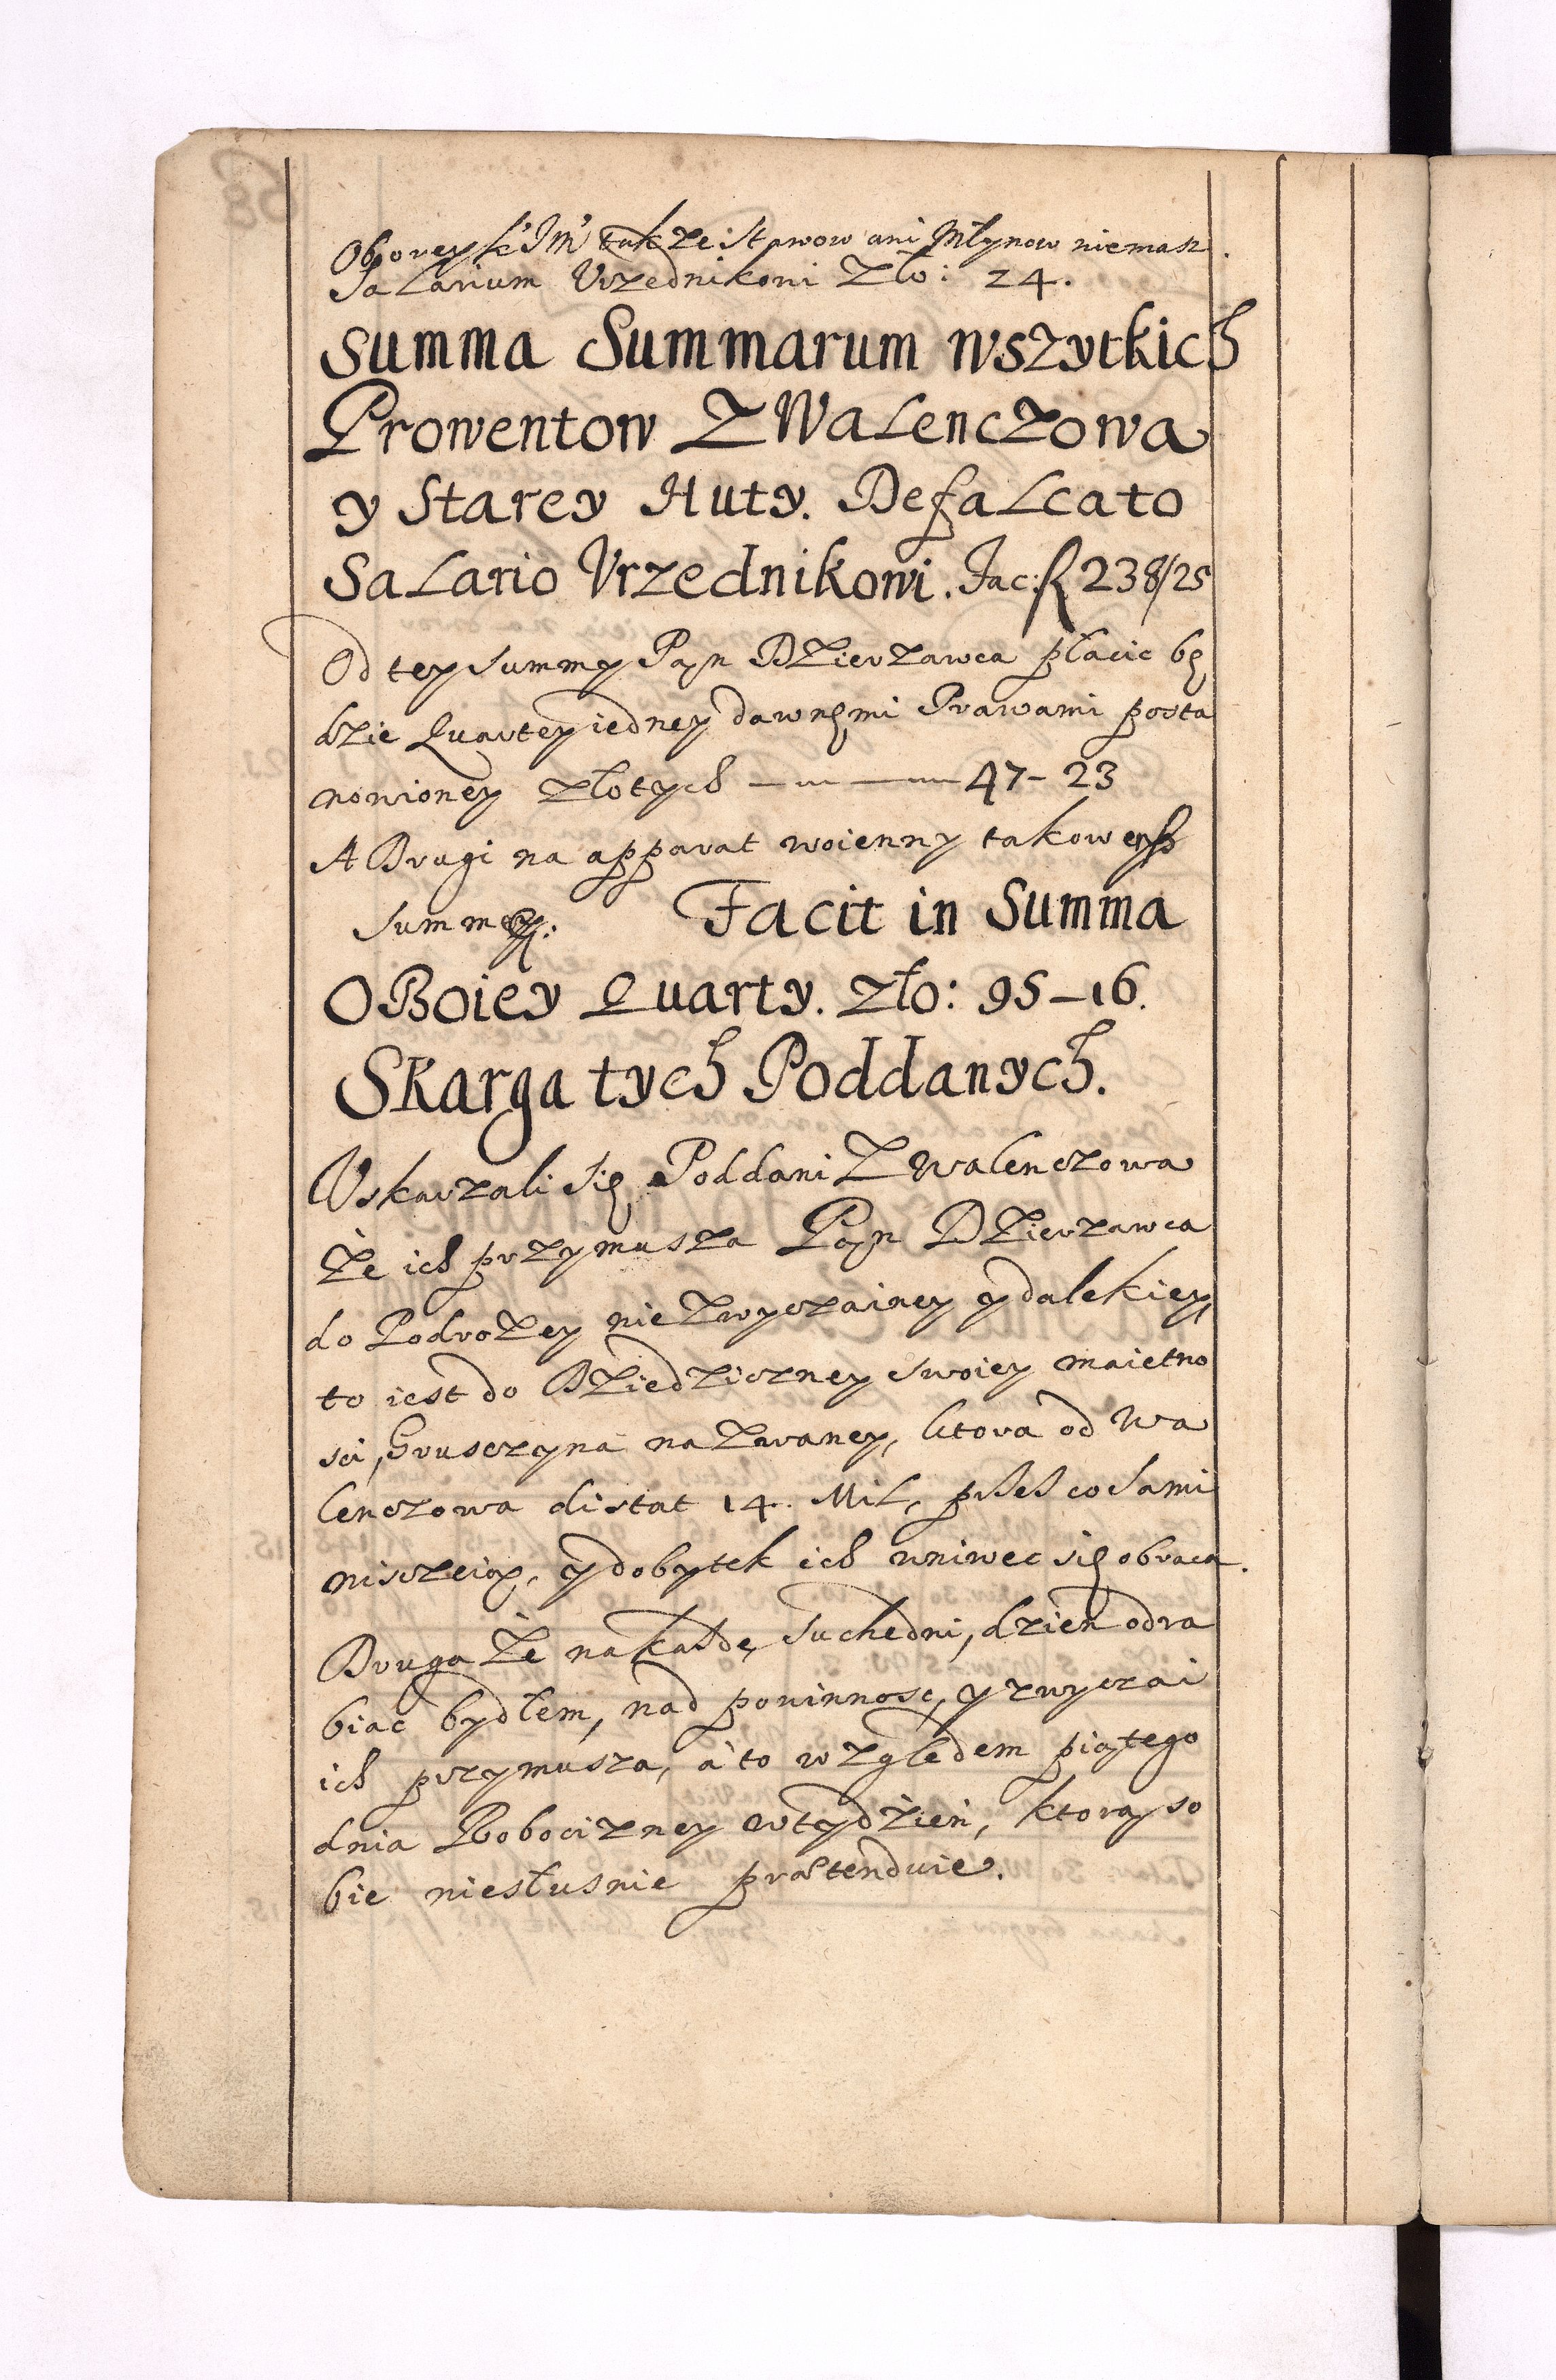 Obory JKM takze Stawow ani Młynow niemasz.
Salarium Vrzednikowi Zło: 24.
Summa Summarum wszytkich
Prowentow Z Walenczowa
y Starey Huty. Defalcato
Salario Vrzednikowi. Fac: fl 238/25
Od tey Summy Pan Dzierzawca płacic bę
dzie Quarty iedney dawnemi Prawami posta
nowioney złotych 47 - 23
A Drugi na apparat woienny takowejz
Summy: Facit in Summa
OBoiey Quarty. zło: 95 - 16.
Skarga tych Poddanych.
Vskarzali się Poddani Z Walenczowa
Że ich przymusza Pan Dzierzawca
do Podrożey nie Zwyczainey y dalekiey,
to iest do Dziedziczney swoiey maietno
sci, Gruszczyna nazwaney, ktora od Wa
lenczowa distat 14. Mil, przez co sami
niszczeią, y dobytek ich wniwec się obraca.
Druga Że na każde, Suchedni, dzien odra
biac bydłem, nad powinnosc, y zwyczai
ich przymusza, à to względem piątego
dnia Robocizney w tydzień, ktorą so
bie niesłusnie prætenduie.